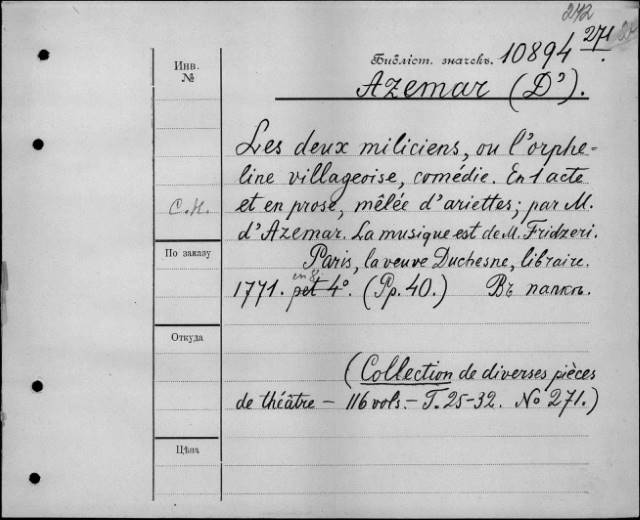 272
Инв.
№
Библіот. значекъ. 10894 271.
Azemar (D').
Les deux miliciens, ou l'orphe-
line villageoise, comédie. En 1 acte
С.Н. et en prose, mêlée d'ariettes; par M.
d'Azemar. La musique est de M. Fridzeri.
По заказу
Paris, la veuve Duchesne, libraire.
en 8º
1771. pet 4º. (Pp. 40.) Въ папкѣ.
Откуда
(Collection de diverses pièces
de théâtre – 116 vols. – T. 25-32. No 271.)
Цѣна